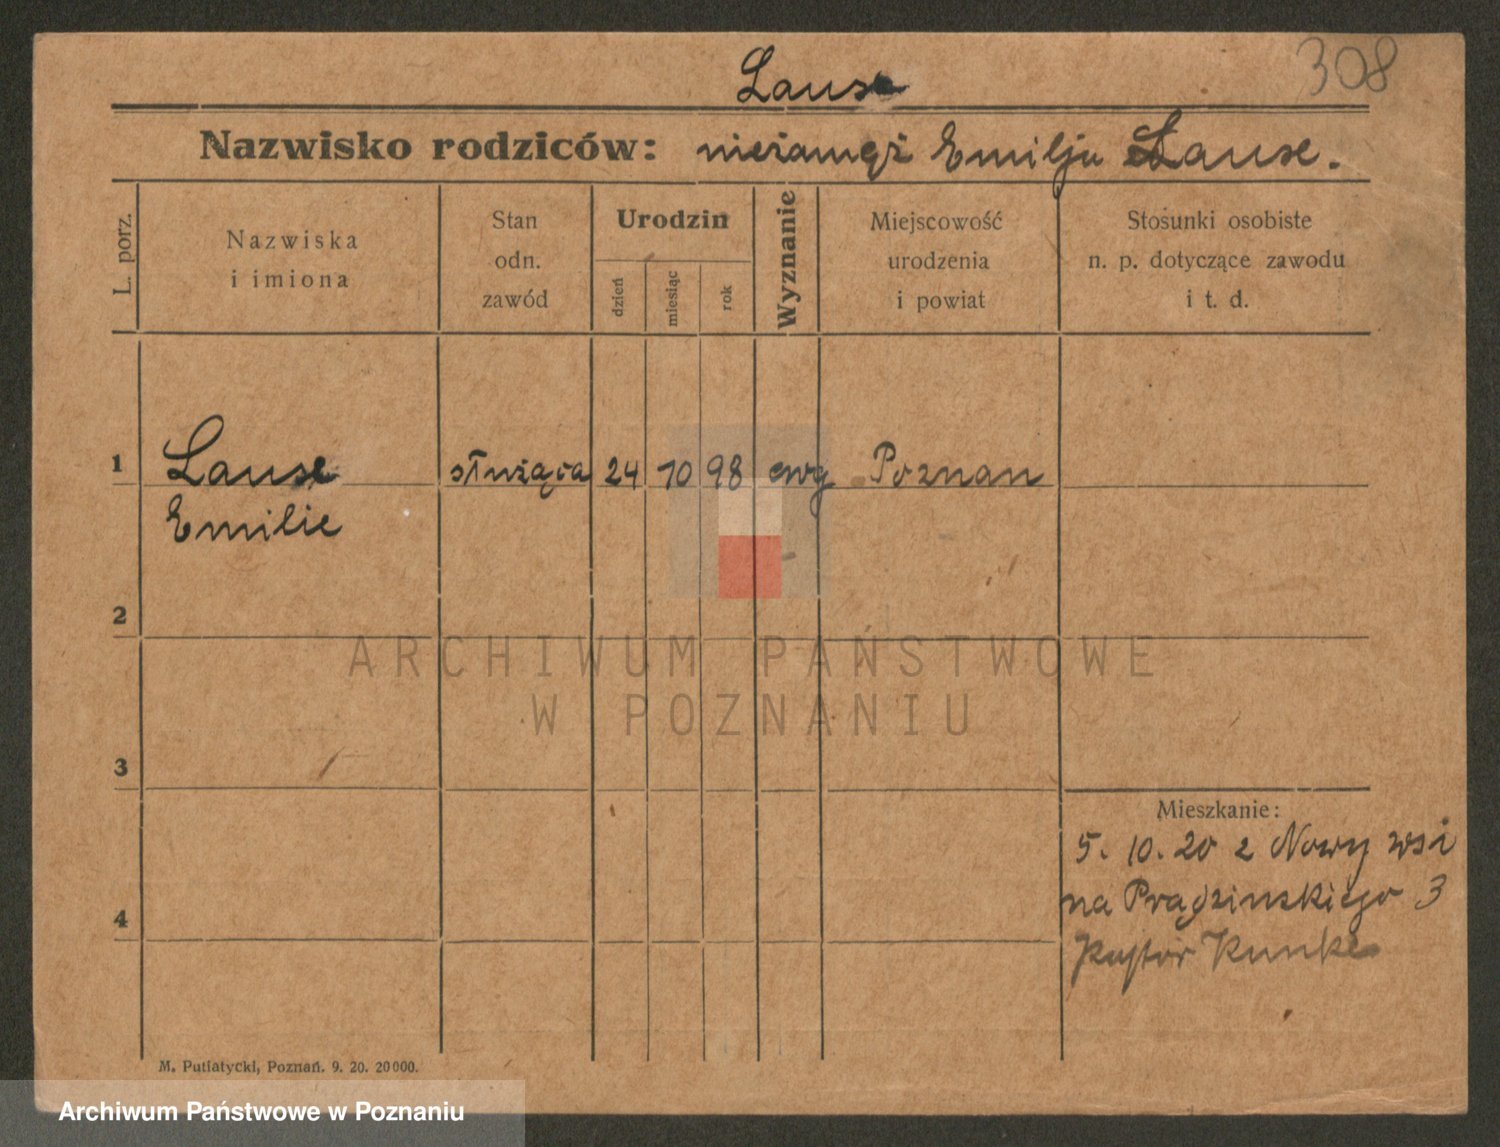 308
Lause
Nazwisko rodziców: niezamęż Emilju Lause.
L. porz.
Nazwiska
i imiona
Stan
odn.
zawód
Urodzin
dzień
miesiąc
rok
Wyznanie
Miejscowość
urodzenia
i powiat
Stosunki osobiste
n. p. dotyczące zawodu
i t. d.
1 Lause służąca 24 10 98 ewg Poznan
Emilie
2
3
4
Mieszkanie:
5. 10. 20 z Nowy wsi
na Prądzinskiego 3
Kunke
M. Putiatycki, Poznań. 9. 20. 20000.
ARCHIWUM PAŃSTWOWE
W POZNANIU
Archiwum Państwowe w Poznaniu